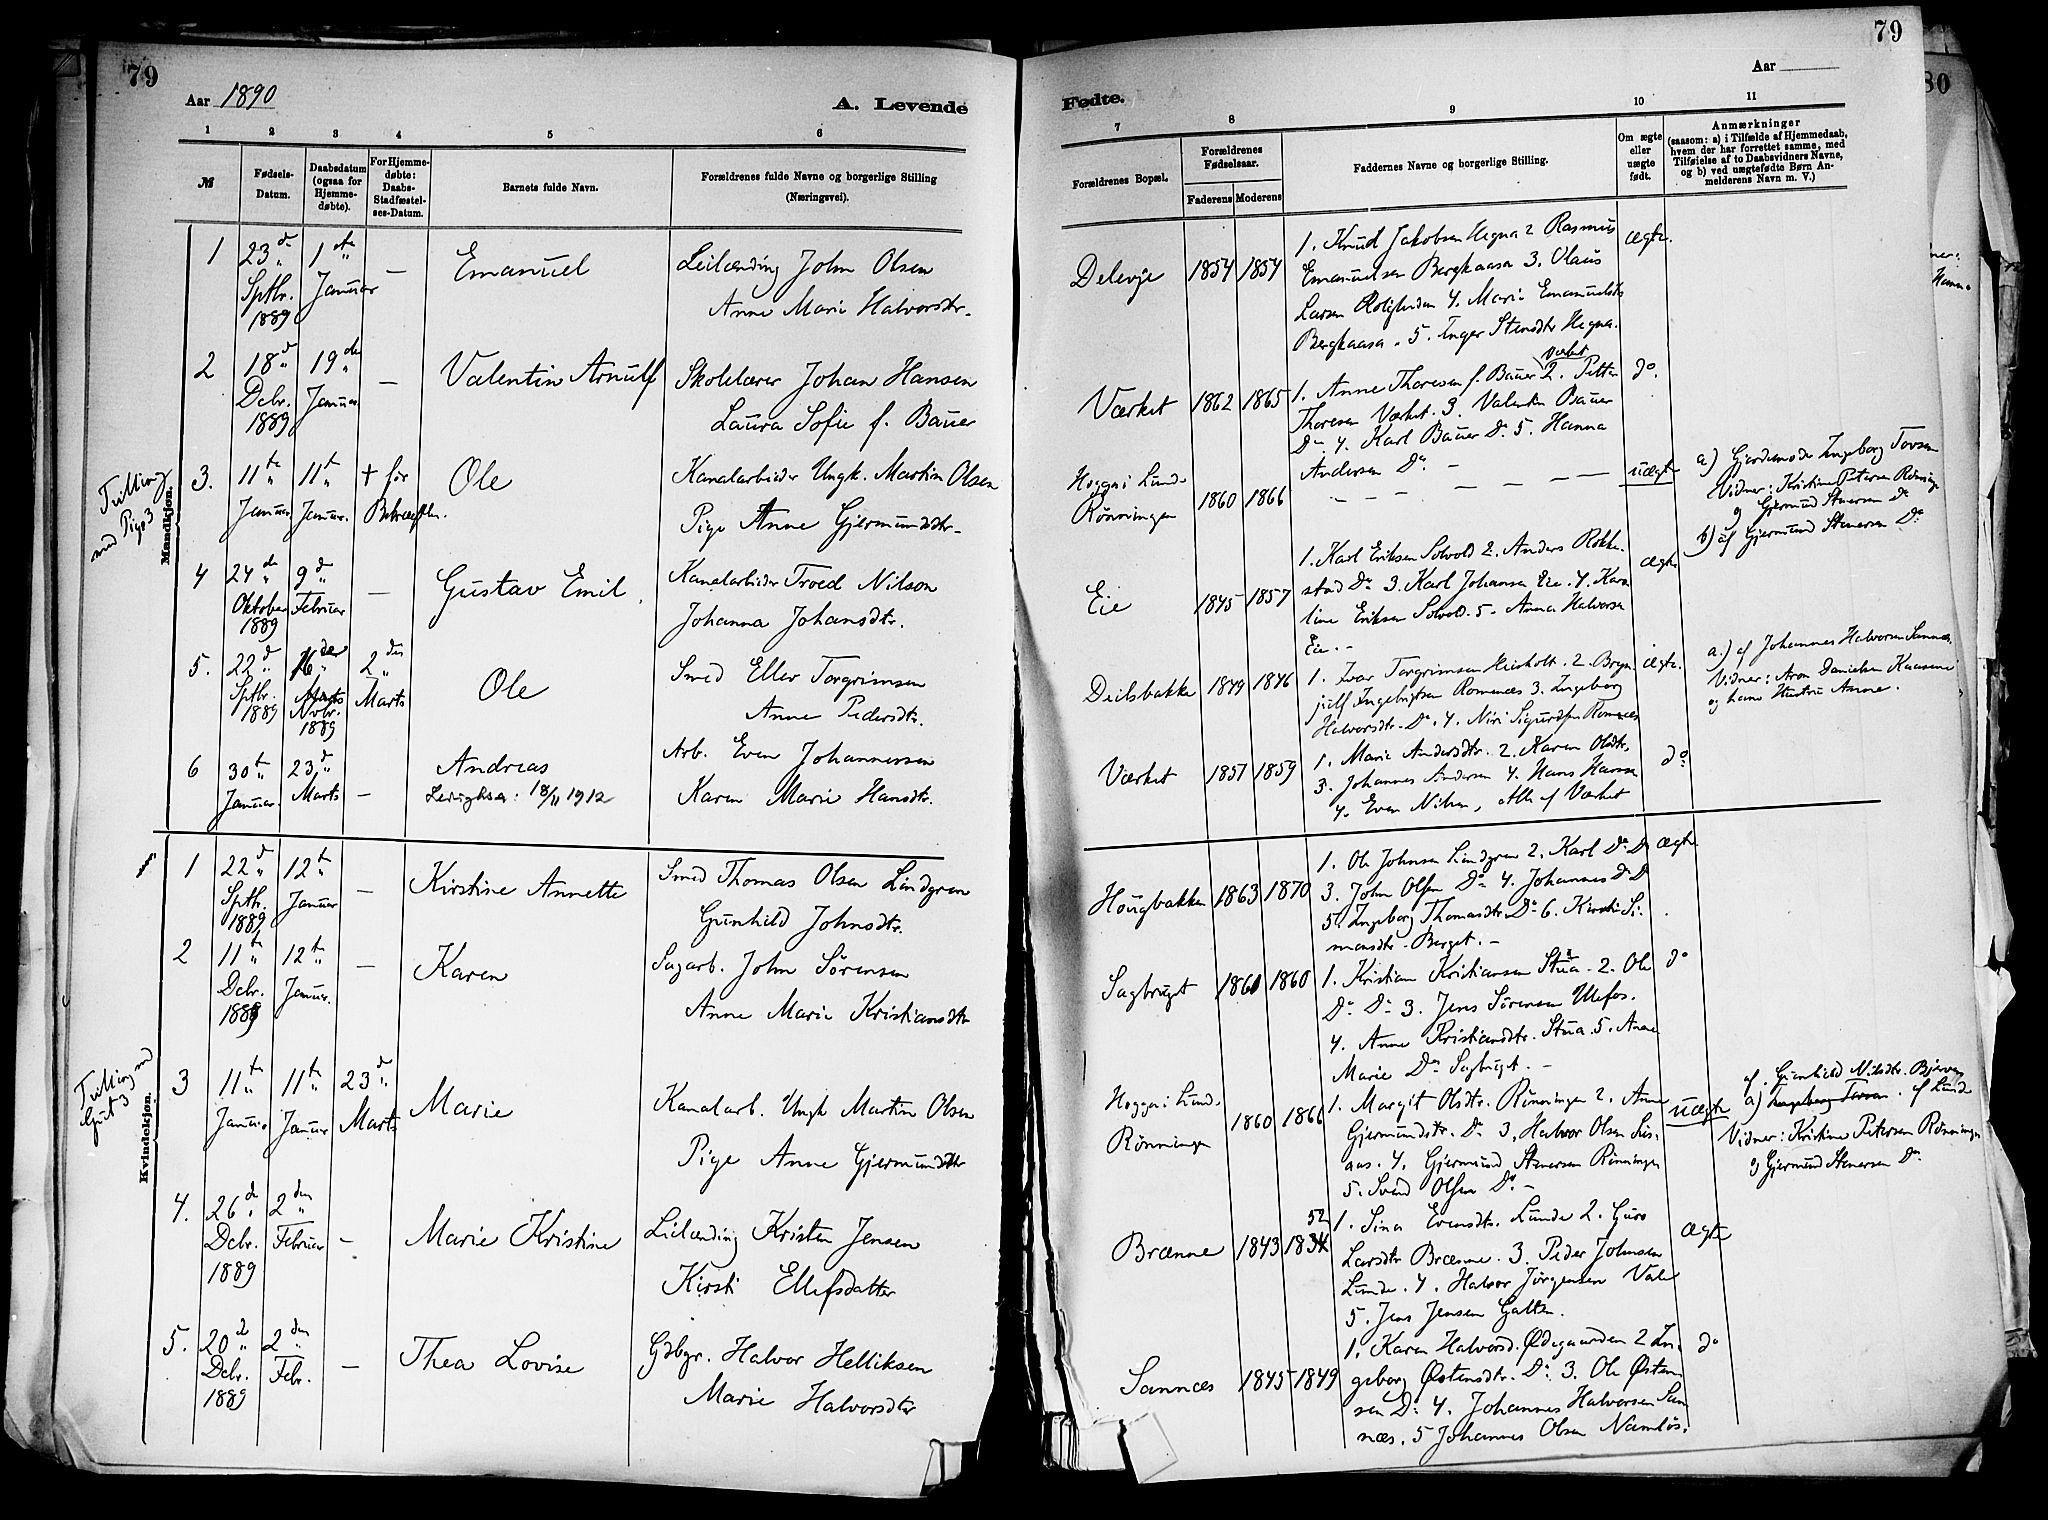 79
Aar 1890
A. Levende
1 2 3 4 5 6
№
Fødsels-Datum.
Daabsdatum (ogsaa for Hjemmedøbte).
For Hjemmedøbte: Daabs-Stadfæstelses-Datum.
Barnets fulde Navn.
Forældrenes fulde Navne og borgerlige Stilling (Næringsvei).
Mandkjøn.
1 23de Sptbr. 1889 1ste Januar — Emanuel
Leilænding John Olsen
Anne Marie Halvorsdtr.
2 18d Decbr. 1889 19de Januar — Valentin Arnulf
Skolelærer Johan Hansen
Laura Sofie f. Bauer
Tvilling med Pige 3
3. 11te Januar 11te Januar + før Bekræftelsen. Ole
Kanalarbeider Ungk. Martin Olsen
Pige Anne Gjermundsdtr.
4 24de Oktober 1889 9d Februar — Gustav Emil
Kanalarbeider Troed Nilson
Johanna Johansdtr.
5. 22d Sptbr. 1889 Novbr. 1889 2den Marts Ole
Smed Ellev Torgrimsen
Anne Pedersdtr.
6 30te Januar 23d Marts — Andreas
18/11 1912
Arb. Even Johannesen
Karen Marie Hansdtr.
Kvindekjøn.
1 22d Sptbr. 1889 12te Januar — Kirstine Annette
Smed Thomas Olsen Lindgren
Gunhild Johnsdtr.
2 11te Decbr. 1889 12te Januar — Karen
Sagarb. John Sørensen
Anne Marie Kristiansdtr
Tvilling med Gut 3
3 11te Januar 11te Januar 23d Marts Marie
Kanalarb. Ungk Martin Olsen
Pige Anne Gjermundsdtr
4. 26de Decbr. 1889 2den Februar — Marie Kristine
Leilænding Kristen Jensen
Kirsti Ellefsdatter
5. 20de Decbr. 1889 2den Febr. — Thea Lovise
Gdbgr. Halvor Helliksen
Marie Halvorsdtr
79
80
Aar
Fødte.
7 8 9 10 11
Forældrenes Bopæl.
Forældrenes Fødselsaar.
Faderens Moderens
Faddernes Navne og borgerlige Stilling.
Om ægte eller uægte født.
Anmærkninger
(saasom: a) i Tilfælde af Hjemmedaab, hvem der har forrettet samme, med Tilføielse af to Daabsvidners Navne, og b) ved uægtefødte Børn Anmelderens Navn m. V.)
Delevje 1854 1854
1. Knud Jakobsen Hegna 2 Rasmus
Emanuelsen Berghaasa 3. Olaus
Larsen Roligheden 4. Marie Emanuelsdtr
Berghaasa. 5. Inger Stensdtr Hegna.
Ægte.
Værket 1862 1865
1. Anne Thoresen f. Bauer Værket 2. Petter
Thoresen Værket. 3. Valentin Bauer
Do 4. Karl Bauer Do 5. Hanna
Andersen Do —
do.
Hogga i Lunde
Rønningen 1860 1866
— — — — — —
uægte
a) Gjordemoder Ingeborg Tovsen
Vidner: Kristine Petersen Rønninge
og Gjermund Stenersen Do
b) af Gjermund Stenersen Do
Eie 1845 1857
1. Karl Eriksen Solvold 2. Anders Rokke-
stad Do 3. Karl Johansen Eie. 4. Karo
line Eriksen Solvold. 5. Anna Halvorsen
Eie. —
Ægte
Deilsbakke 1849 1846
1. Ivar Torgrimsen Heisholt. 2. Bryn
julf Ingebrigtsen Romenæs 3. Ingeborg
Halvorsdtr. Do. 4. Niri Sigurdsen Romenæs
ægte.
a.) af Johannes Halvorsen Sannæs
Vidner: Aron Danielsen Kaasene
og hans Hustru Anne.
Værket 1857 1859
1. Marie Andersdtr. 2. Karen Olsdtr.
3. Johannes Andersen 4. Hans Hansen
4. Even Nilsen, Alle af Værket
do
Hougbakken 1863 1870
1. Ole Johnsen Lindgren 2. Karl Do Do
3. John Olsen Do 4. Johannes Do Do
5. Ingeborg Thomasdtr. Do 6. Kirsti Si-
monsdtr. Berget. —
Ægte
Sagbruget 1860 1860
1. Kristian Kristiansen Stua. 2. Ole
Do Do 3. Jens Sørensen Ulefos.
4. Anne Kristiansdtr. Stua. 5. Anne
Marie Do Sagbruget. —
do
Hogga i Lunde
Rønningen 1860 1866
1. Margit Olsdtr. Rønningen 2. Anne
Gjermundsdtr. Do 3. Halvor Olsen Lis-
aas. 4. Gjermund Stenersen Rønningen
5. Svend Olsen Do —
uægte
af: Gunhild Nilsdtr. Bjerva
a) Ingeborg Tovsen. af Lunde
Vidner: Kristine Petersen Rønningen
og Gjermund Stenersen Do
Brænne 1843 1834 52
1. Sina Evensdtr. Lunde 2. Guro
Larsdtr Brænne. 3. Peder Johnsen
Lunde. 4. Halvor Jørgensen Vale
5. Jens Jensen Galten.
Ægte
Sannæs 1845 1849
1. Karen Halvorsd. Ødegaarden 2 In-
geborg Østensdtr. Do 3. Ole Østen
sen Do 4. Johannes Halvorsen San
næs. 5 Johannes Olsen Namløs.
do